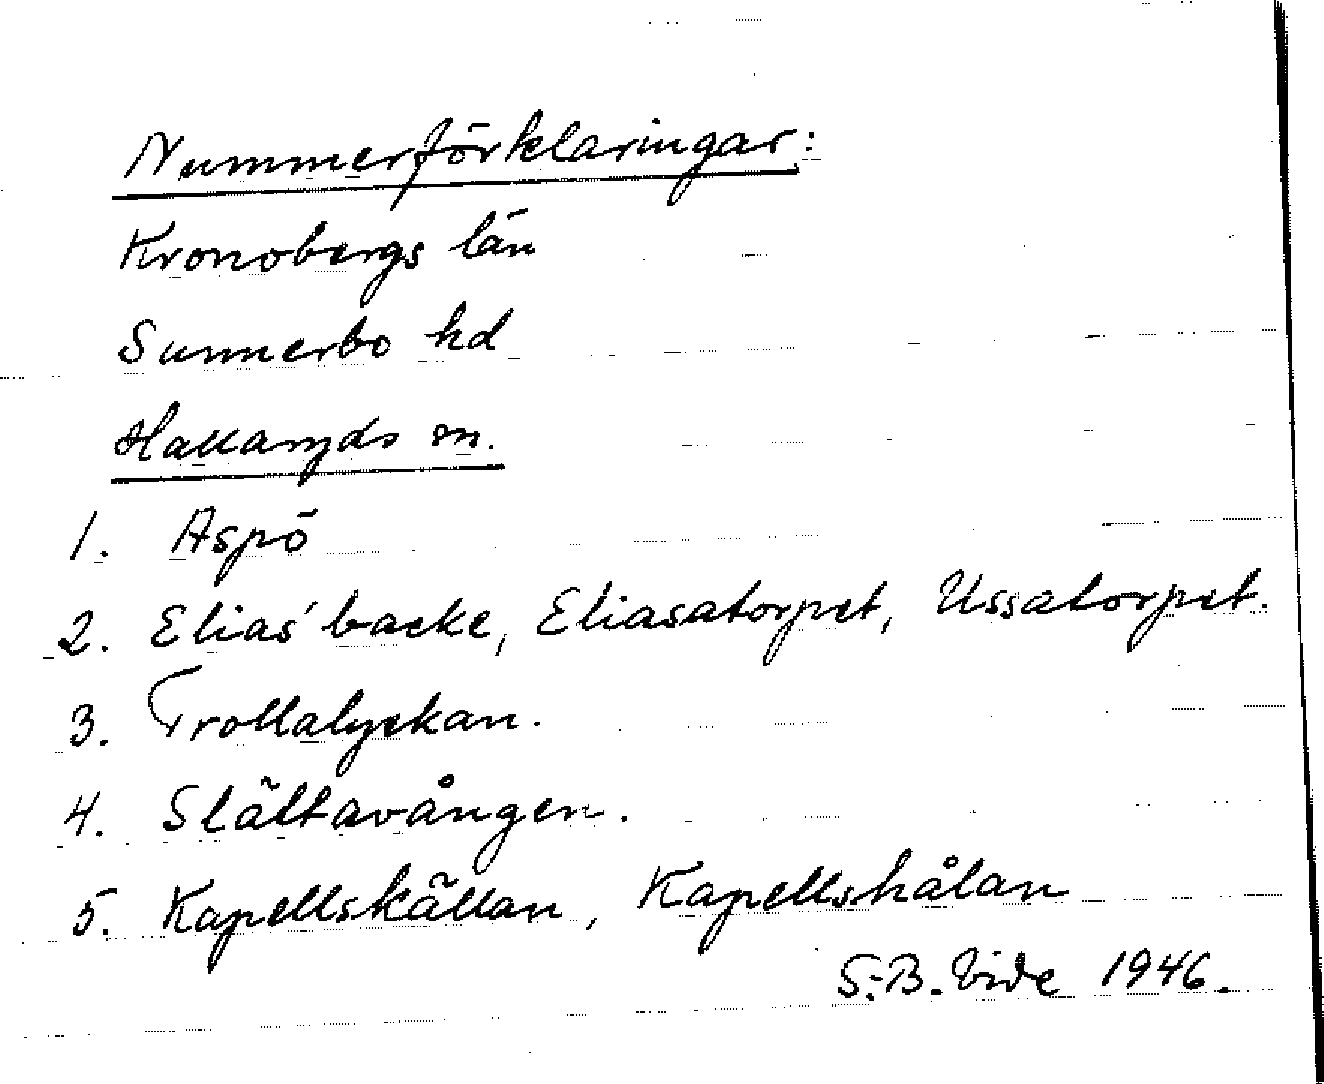 Nummerförklaringar:
Kronobergs län
Sunnerbo hd
Hallaryds sn.
1. Aspö
2. Elias' backe, Eliasatorpet, Ussatorpet.
3. Trollalyckan.
4. Slättavången.
5. Kapellskällan, Kapellshålan
S.-B. Vide 1946.